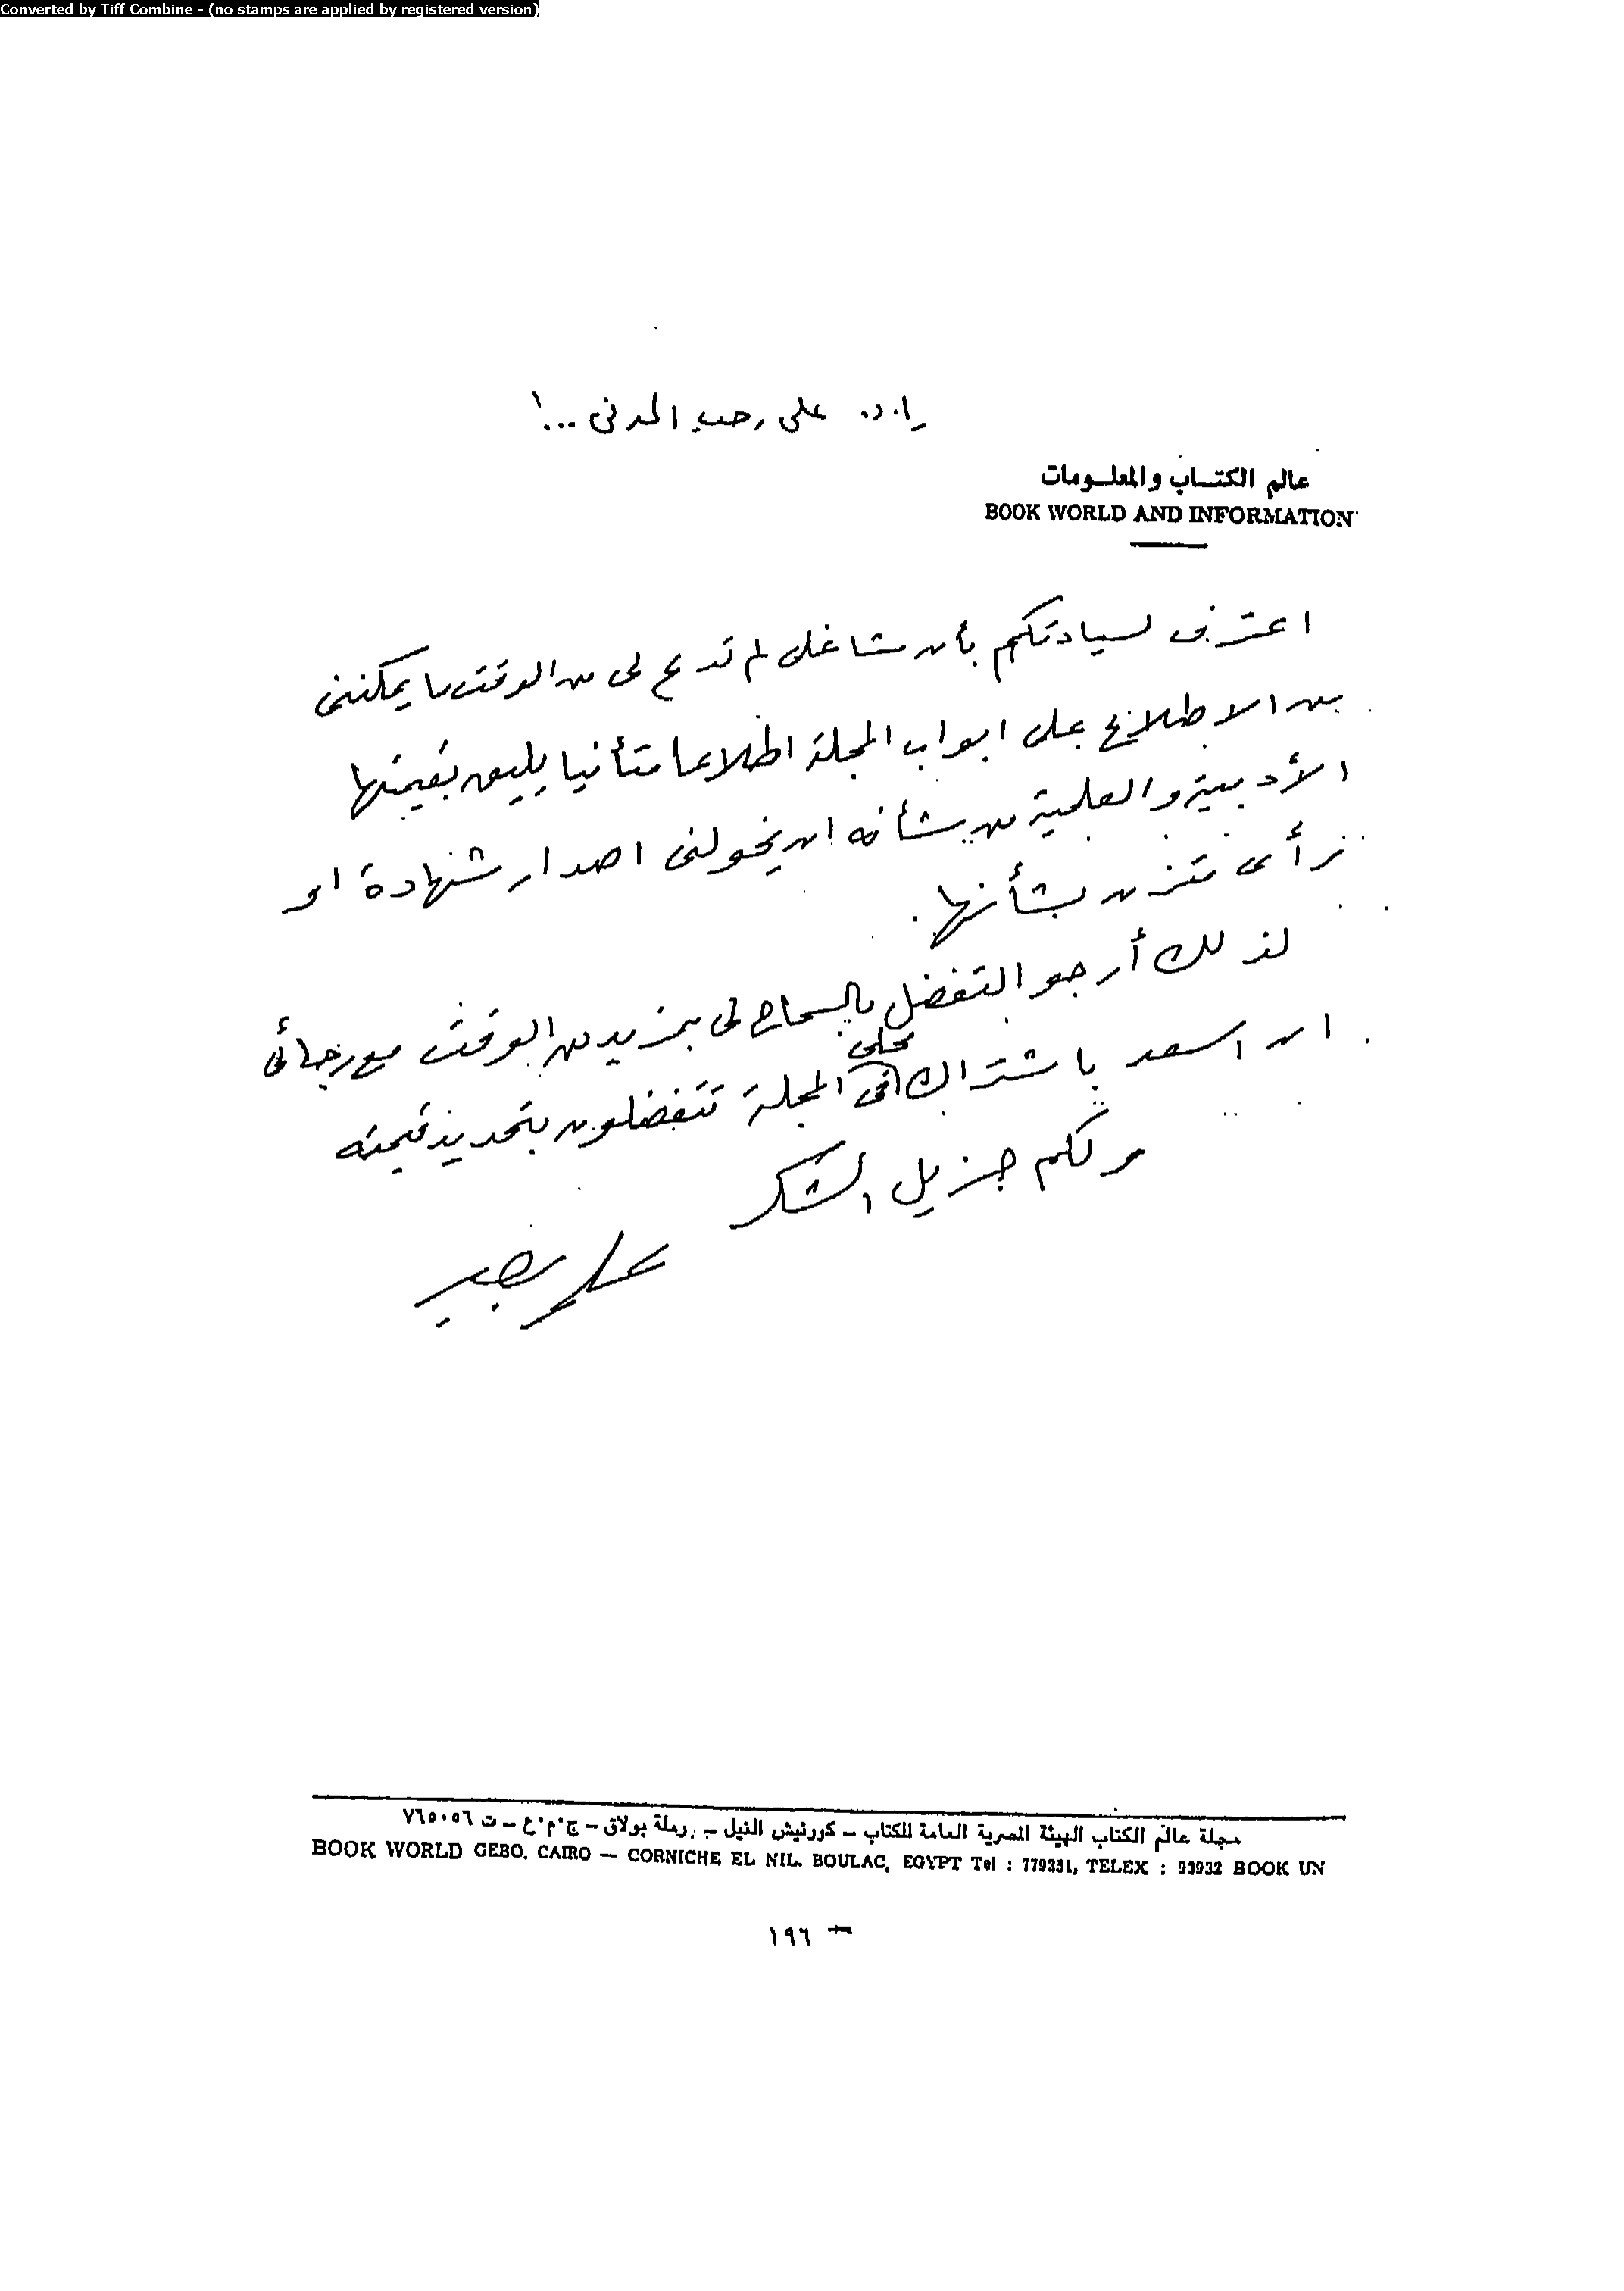 Converted by Tiff Combine - (no stamps are applied by registered version)
ا.د. على رجب المدنى ...!
عالم الكتاب والمعلومات
BOOK WORLD AND INFORMATION
اعترف لسيادتكم بأن مشاغلى لم تدع لى من الوقت ما يمكننى
من الاطلاع على ابواب المجلة اطلاعا متأنيا يليق بقيمتها
الأدبية والعلمية من شأنه ان يخولنى اصدار شهادة او
رأى متزن بشأنها.
لذلك أرجو التفضل بالسماح لى بمزيد من الوقت مع رجائى
محلى
ان اسعد باشتراك فى المجلة تتفضلون بتحديد قيمته
ولكم جزيل الشكر
مجلة عالم الكتاب الهيئة المصرية العامة للكتاب – كورنيش النيل – رملة بولاق – ج.م.ع – ت ٧٦٥٠٥٦
BOOK WORLD GEBO. CAIRO — CORNICHE EL NIL. BOULAC, EGYPT Tel : 779231, TELEX : 93932 BOOK UN
١٩٦ –